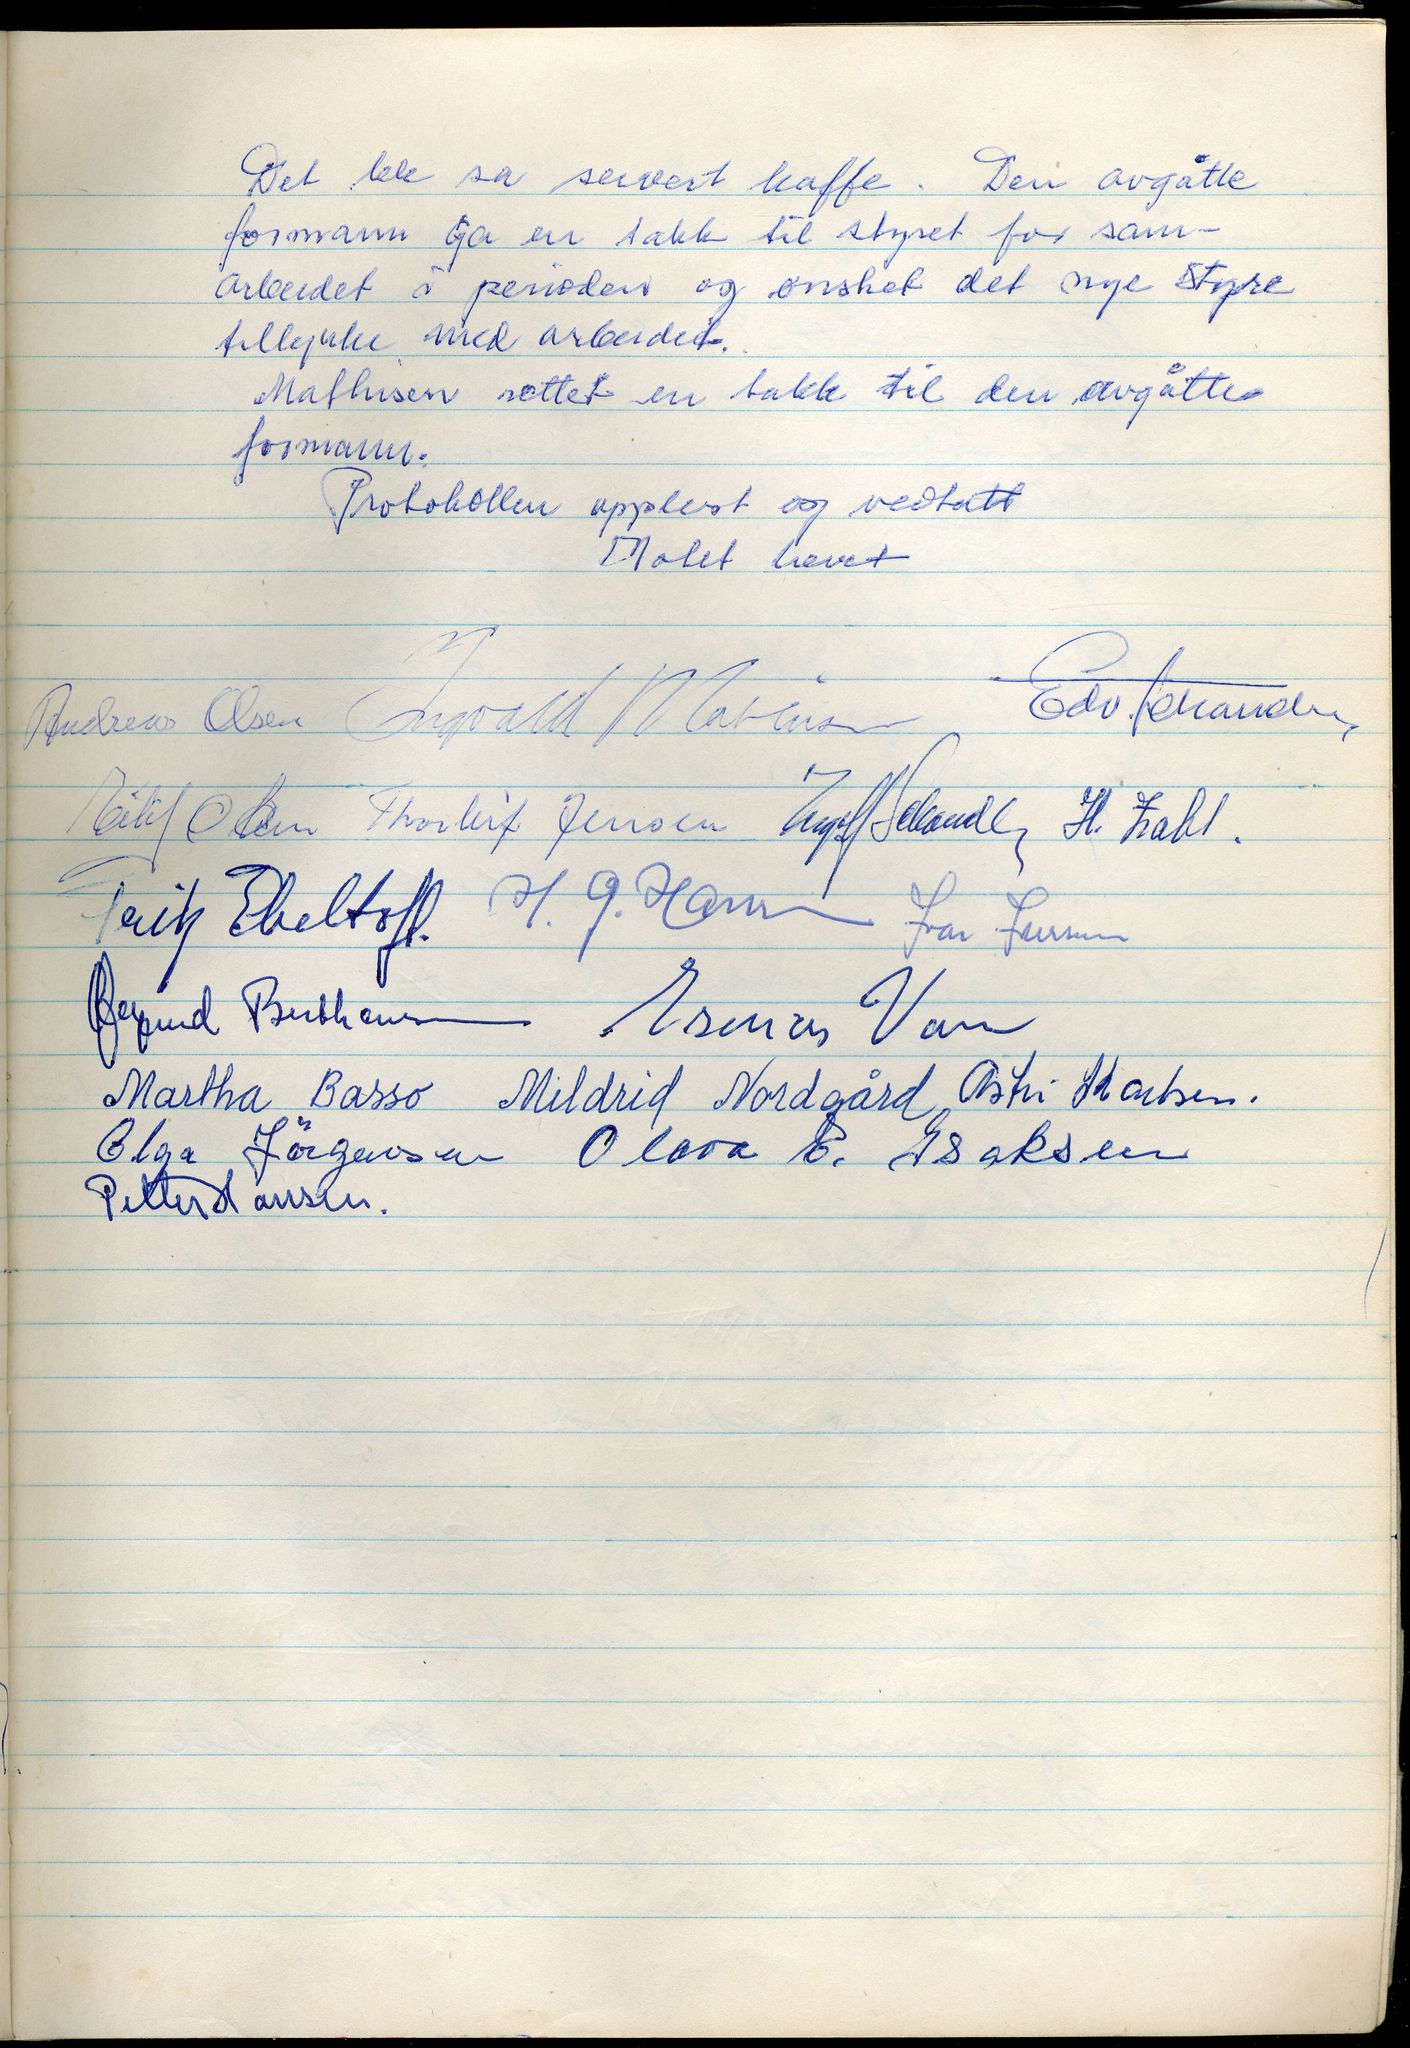 Det ble så servert kaffe. Den avgåtte
formann ga en takk til styret for sam-
arbeidet i perioden og ønsket det nye styre
tillykke med arbeidet.
Mathisen rettet en takk til den avgåtte
formann.
Protokollen opplest og vedtatt
Møtet hevet
Andreas Olsen Ingvald Mathisen Edv. Schandy
Eilif Olsen Thorleif Jensen Schandy H. Zahl.
Fritz Ebeltoft. H. J. Hansen Ivar Iversen
Bertheussen Van
Martha Basso Mildrid Nordgård Astri
Olga Jörgensen Olava E. Isaksen
Petter Hansen.